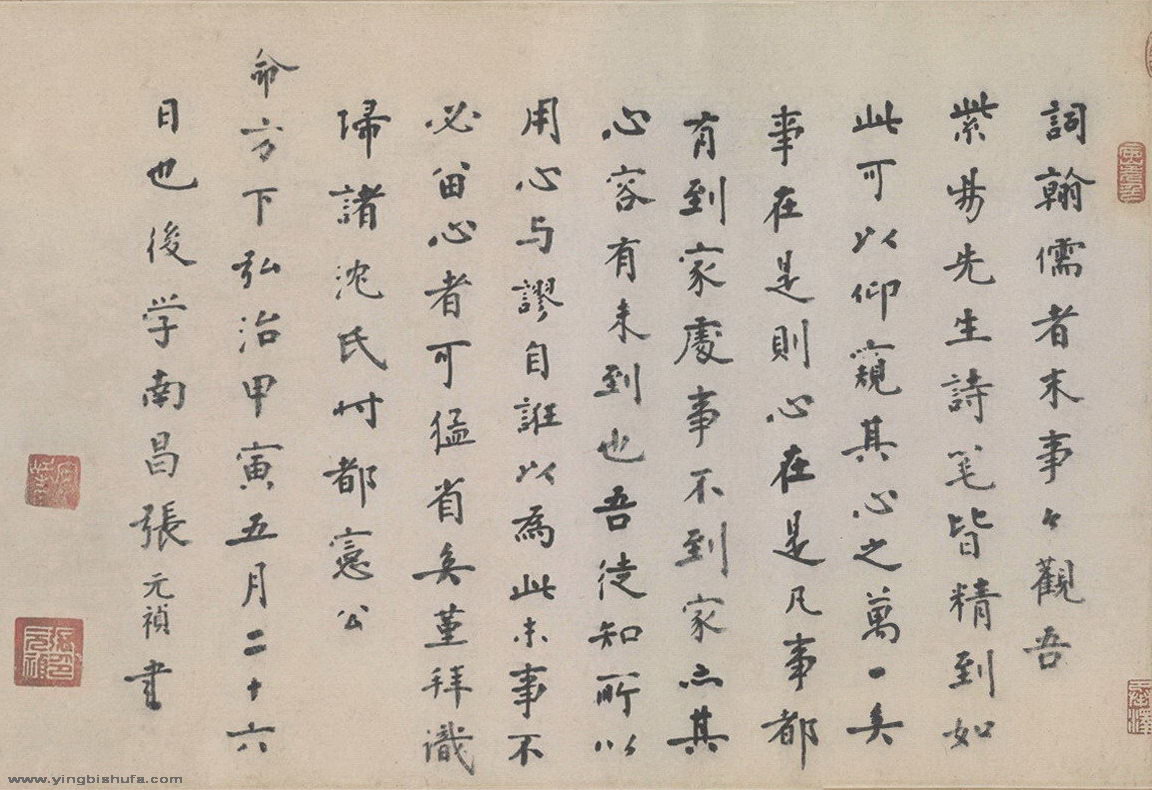 詞翰儒者末事々觀吾
紫昜先生詩筆皆精到如
此可以仰窺其心之萬一矣
事在是則心在是凡事都
有到家處事不到家亦其
心容有未到也吾徒知所以
用心与謬自誑以為此末事不
必留心者可猛省矣堇拜識
歸諸沈氏忖都憲公
命方下弘治甲寅五月二十六
日也後学南昌張元禎書
www.yingbishufa.com